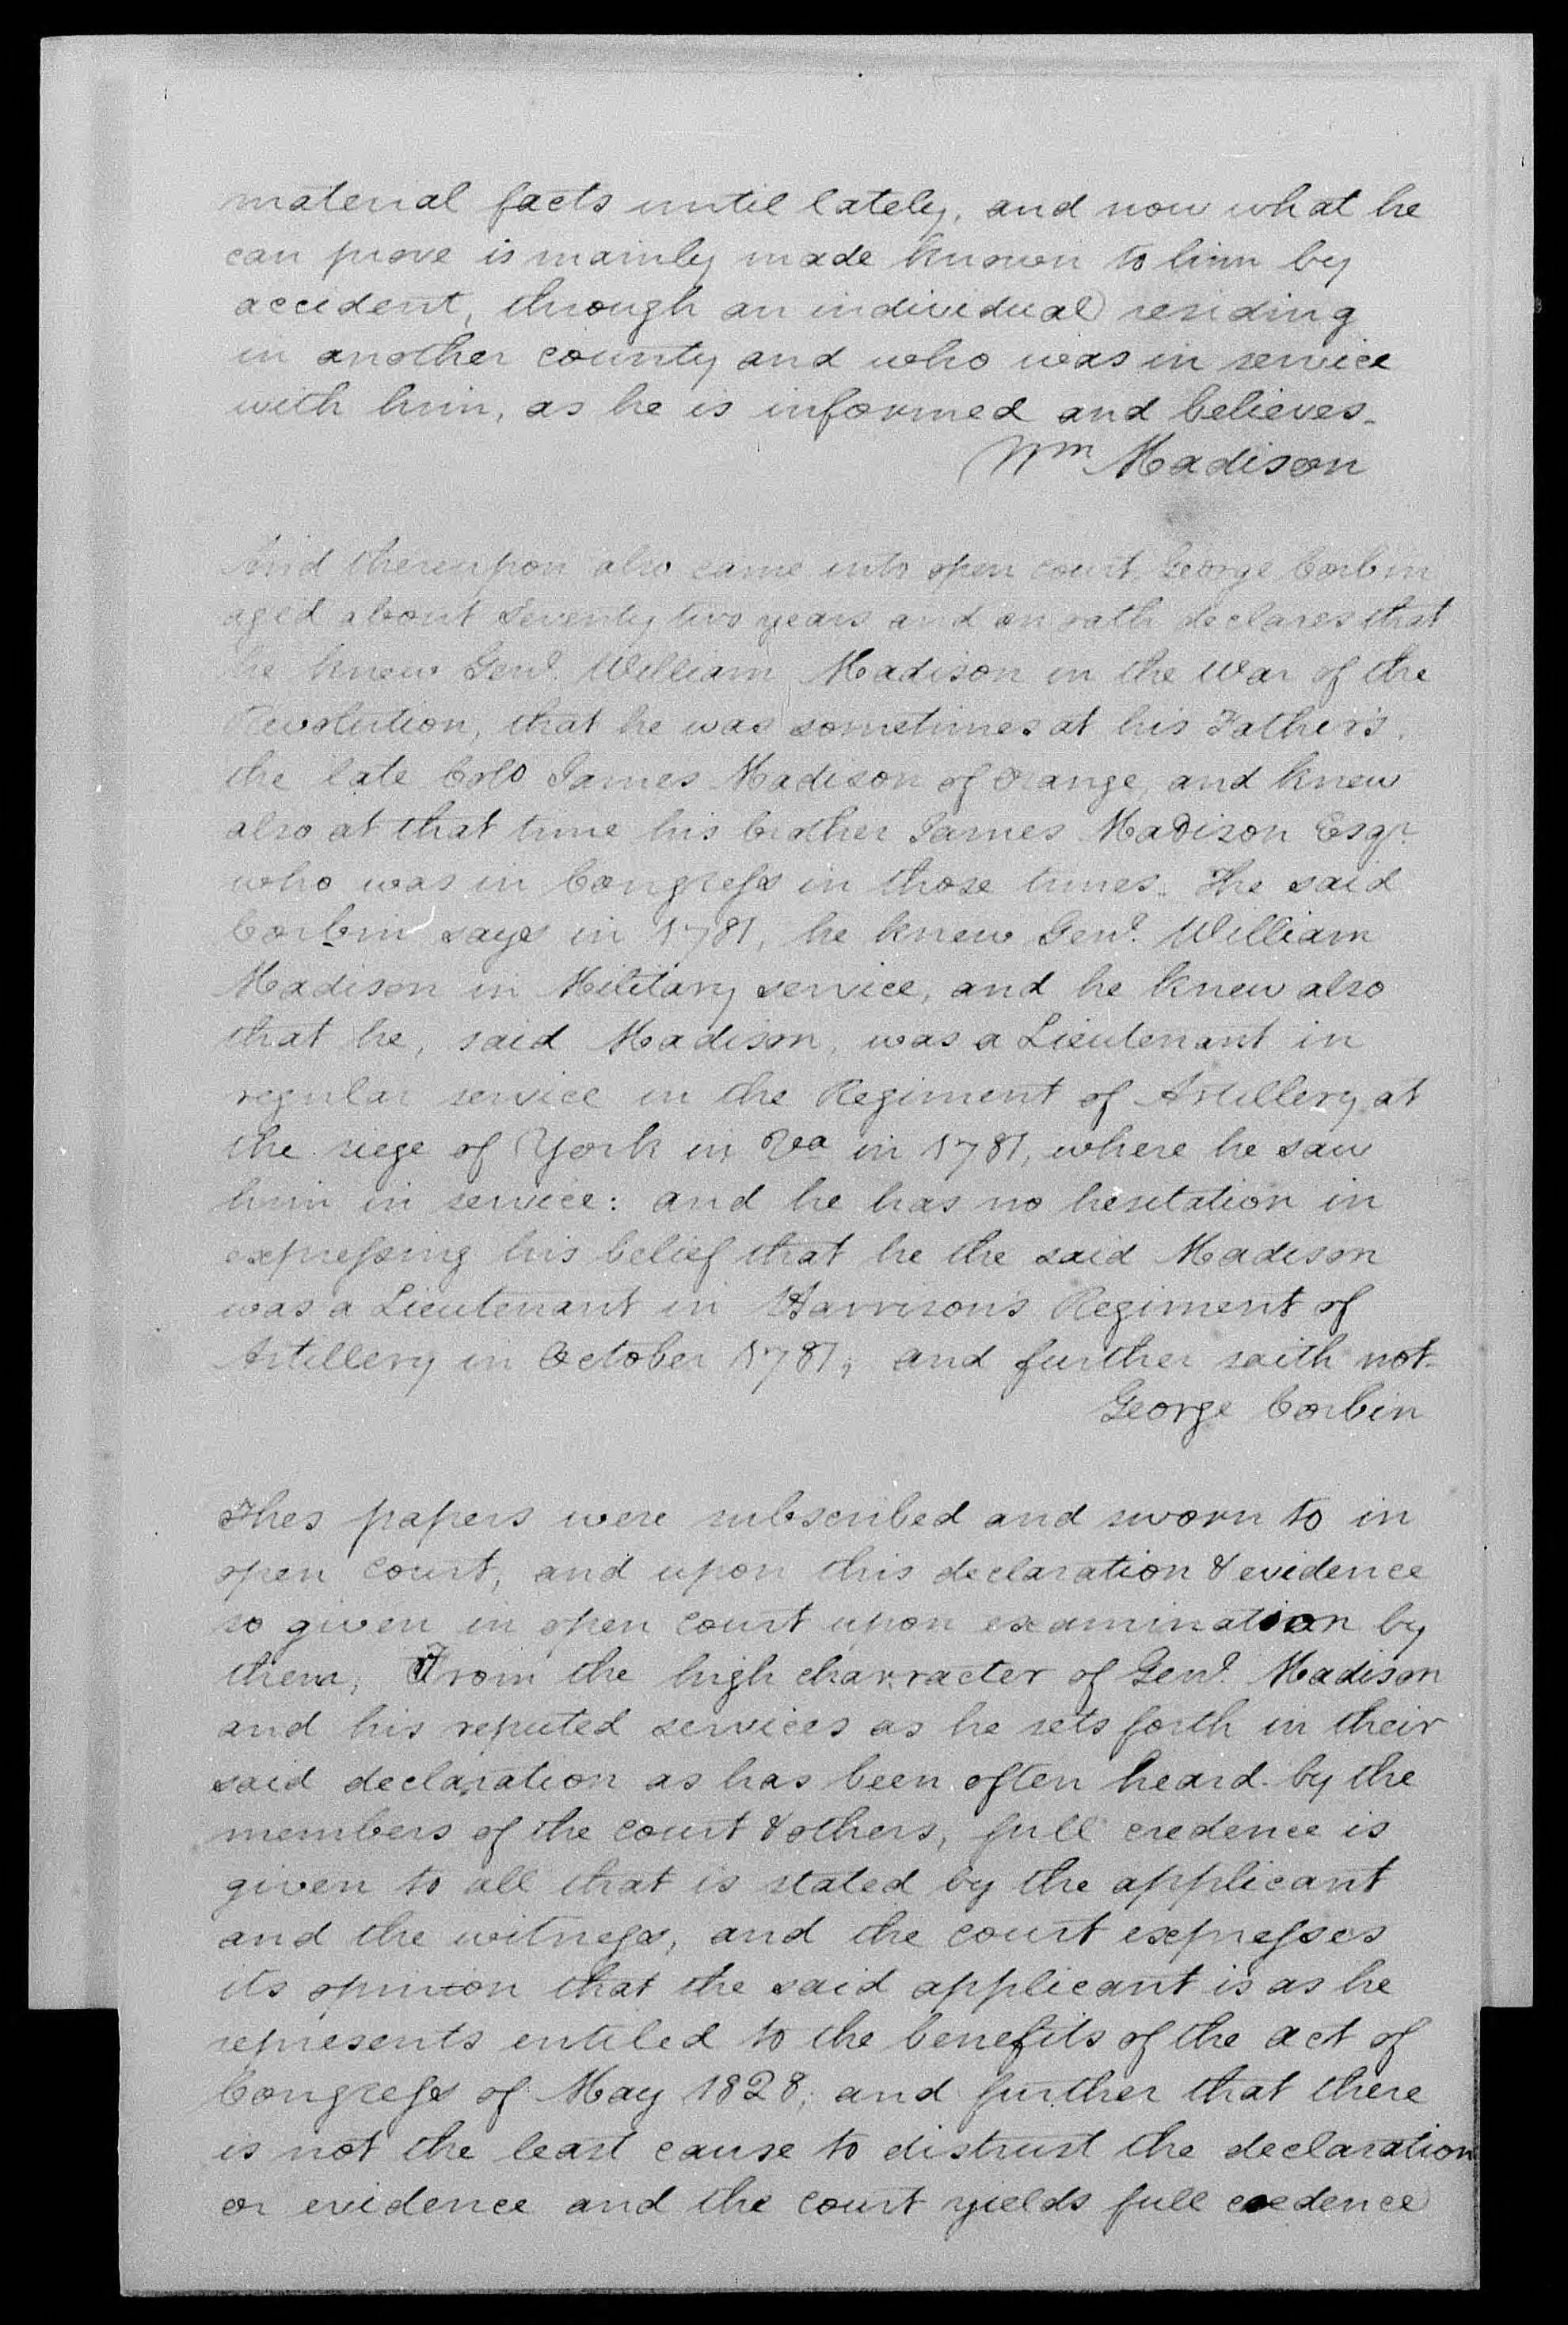 material facts until lately, and now what he
can prove is mainly made known to him by
accident, through an individual residing
in another county and who was in service
with him, as he is informed and believes.
Wm Madison
And thereupon also came into open court George Corbin
aged about Seventy two years and on oath declares that
he knew Genl. William Madison in the War of the
Revolution, that he was sometimes at his Father's,
the late Colo James Madison of Orange, and knew
also at that time his brother James Madison Esqr.
who was in Congress in those times. The said
Corbin says in 1781, he knew Genl. William
Madison in Military service, and he knew also
that he, said Madison, was a Lieutenant in
regular service in the Regiment of Artillery at
the siege of York in Va in 1781, where he saw
him in service: and he has no hesitation in
expressing his belief that he the said Madison
was a Lieutenant in Harrison's Regiment of
Artillery in October 1781; and further saith not.
George Corbin
Thes papers were subscribed and sworn to in
open court, and upon this declaration & evidence
so given in open court upon examination by
them, From the high charracter of Genl. Madison
and his reputed services as he sets forth in their
said declaration as has been often heard by the
members of the court & others, full credence is
given to all that is stated by the applicant
and the witness, and the court expresses
its opinion that the said applicant is as he
represents entiled to the benefits of the act of
Congress of May 1828; and further that there
is not the least cause to distrust the declaration
or evidence and the court yields full credence